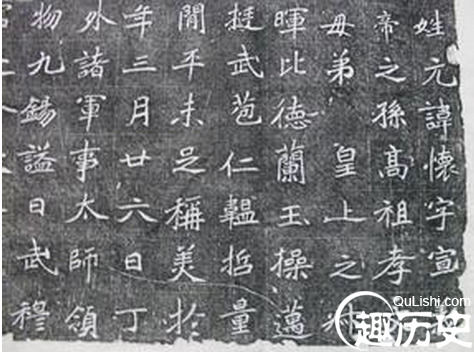 姓元諱懷字宣
帝之孫高祖孝
母弟 皇上之
暉比德蘭玉操邁
挺武苞仁韞哲量
閒平未足稱美於
年三月廿六日丁
外諸軍事太師領
物九錫謚曰武穆
QuLishi.com
趣历史